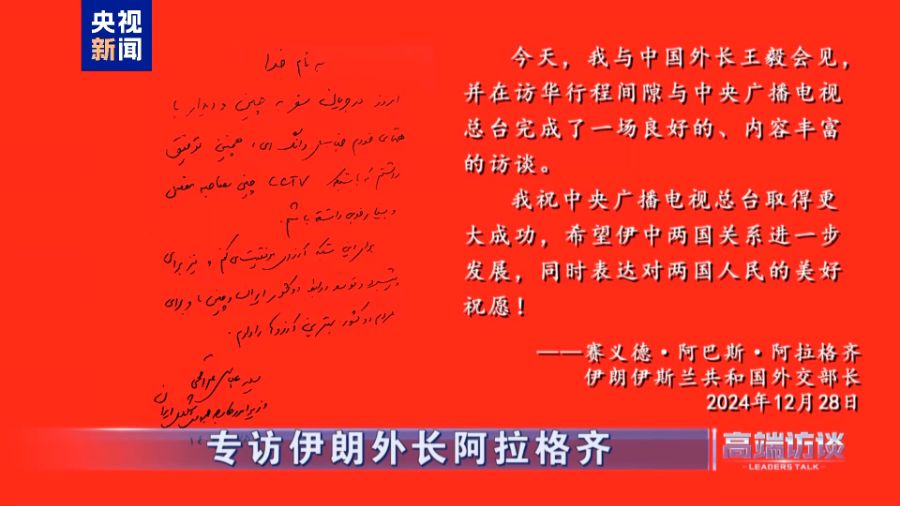 央视
新闻
به نام خدا
امروز در جریان سفر به چین و دیدار با
همتای خودم جناب وانگ ای، همچنین توفیق
داشتم که با شبکه CCTV چین مصاحبه مفصل
و بسیار خوب داشته باشم.
برای این شبکه آرزوی موفقیت می‌کنم و نیز برای
پیشرفت و توسعه روابط دو کشور ایران و چین و برای
مردم دو کشور بهترین آرزوها را دارم.
سید عباس عراقچی
وزیر امور خارجه جمهوری اسلامی ایران
今天，我与中国外长王毅会见，
并在访华行程间隙与中央广播电视
总台完成了一场良好的、内容丰富
的访谈。
我祝中央广播电视总台取得更
大成功，希望伊中两国关系进一步
发展，同时表达对两国人民的美好
祝愿！
——赛义德·阿巴斯·阿拉格齐
伊朗伊斯兰共和国外交部长
2024年12月28日
专访伊朗外长阿拉格齐
高端访谈
LEADERS TALK